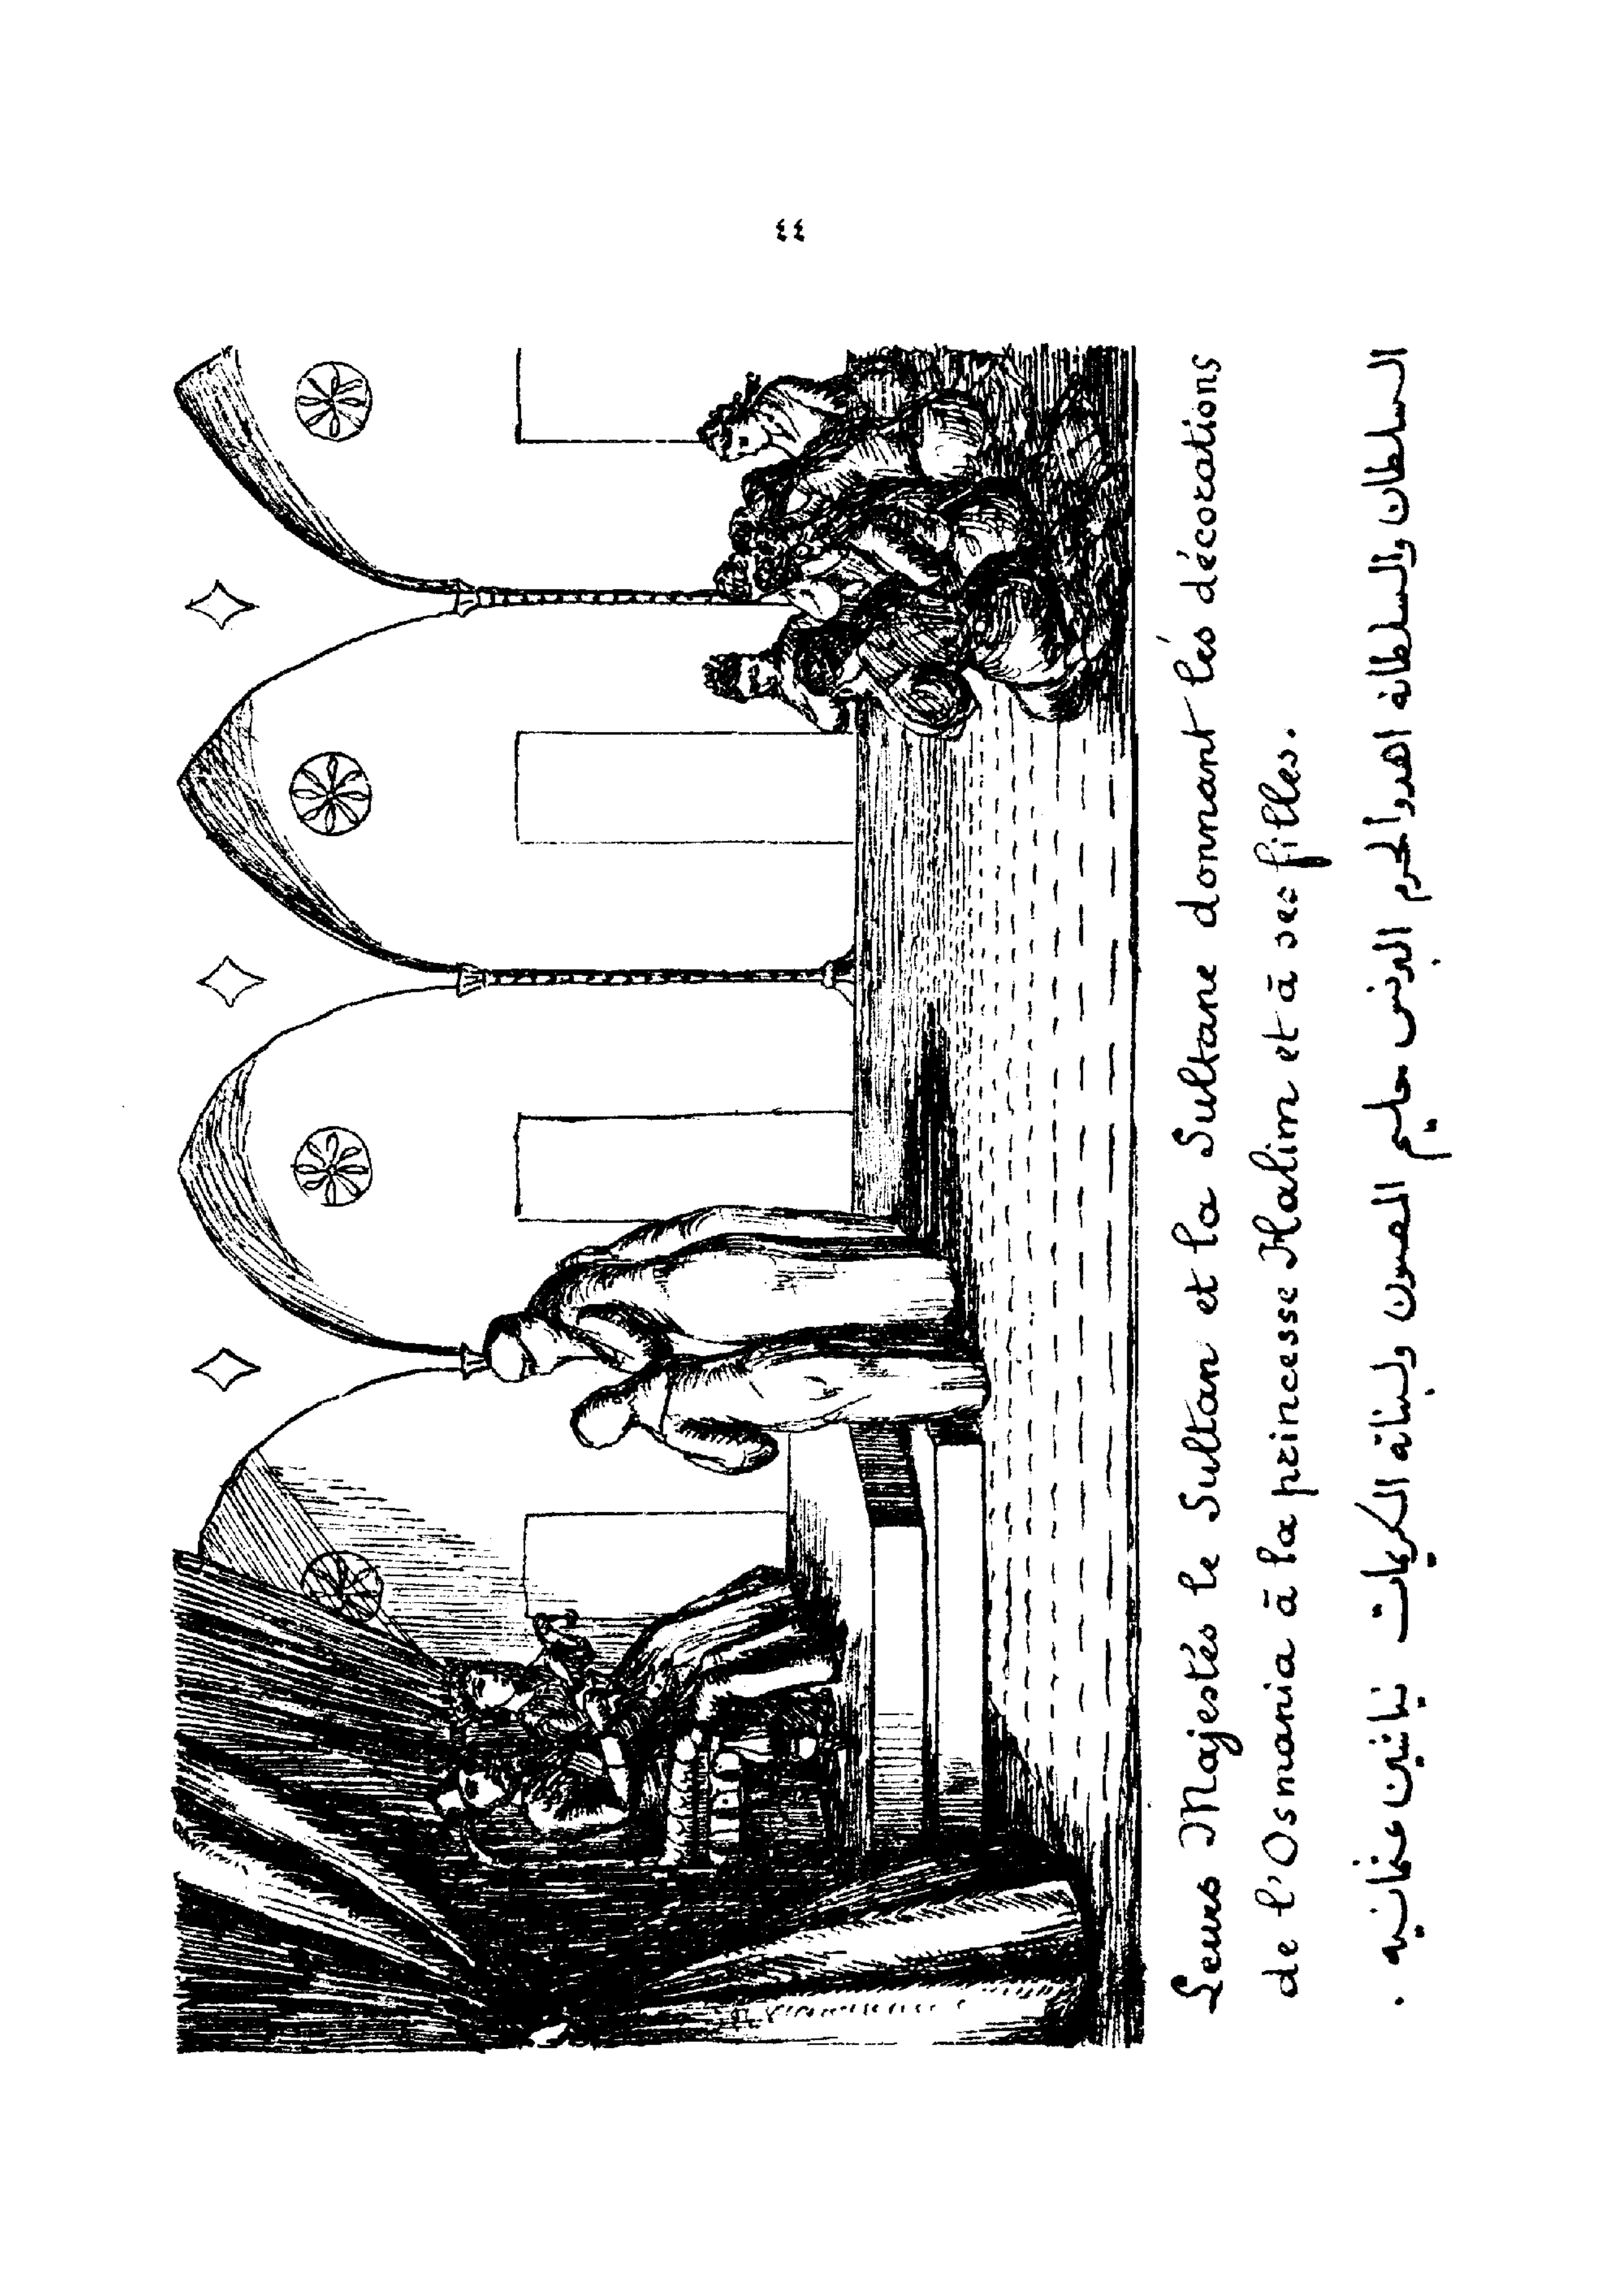 ٤٤
Leurs Majestés le Sultan et la Sultane donnant lés décorations
de l'Osmania ā la princesse Halim et ā ses filles.
السلطان والسلطانه اهدوا لحرم البرنس حليم المصون ولبناته الكريمات نياشين عثمانيه .